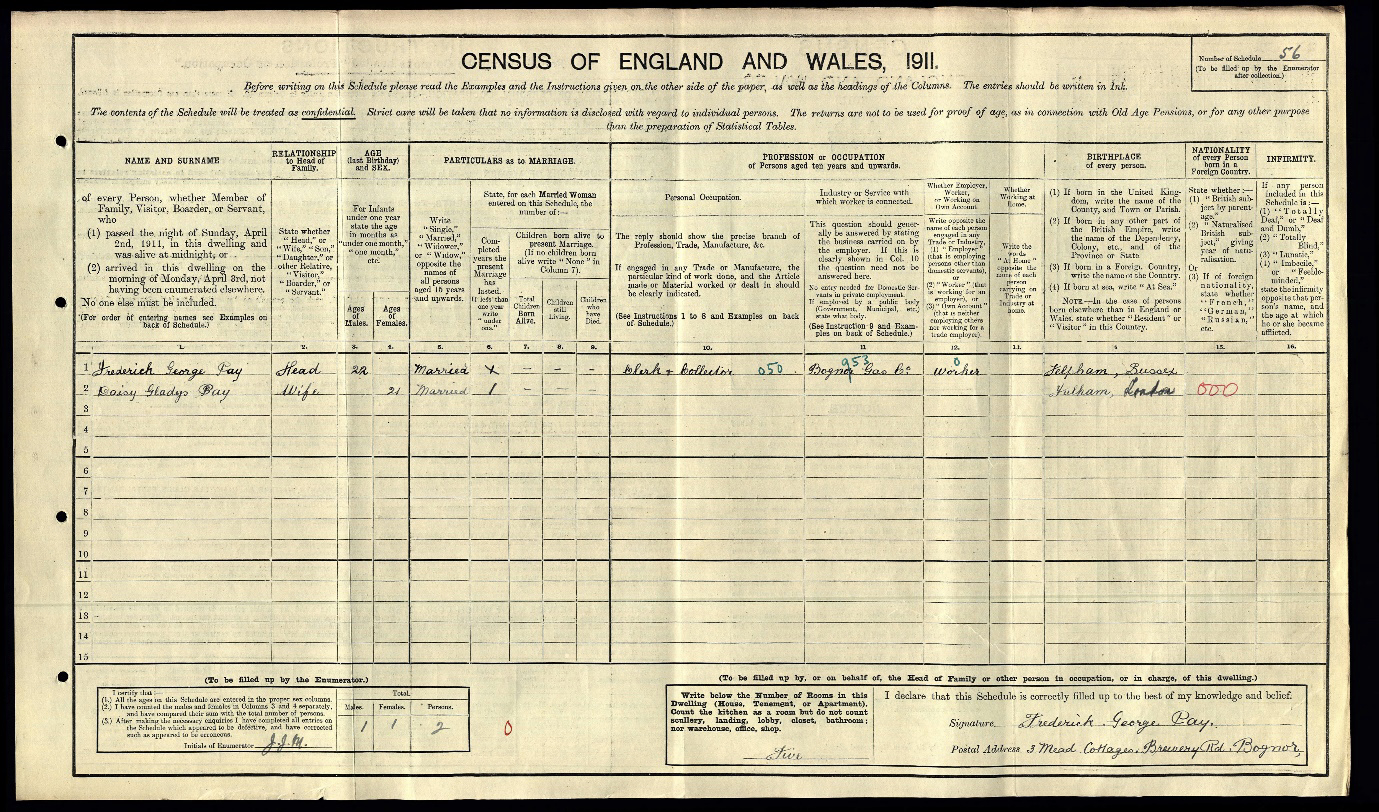 CENSUS OF ENGLAND AND WALES, 1911.
Number of Schedule 56
(To be filled up by the Enumerator
after collection.)
Before writing on this Schedule please read the Examples and the Instructions given on the other side of the paper, as well as the headings of the Columns. The entries should be written in Ink.
The contents of the Schedule will be treated as confidential. Strict care will be taken that no information is disclosed with regard to individual persons. The returns are not to be used for proof of age, as in connection with Old Age Pensions, or for any other purpose
than the preparation of Statistical Tables.
NAME AND SURNAME
of every Person, whether Member of
Family, Visitor, Boarder, or Servant,
who
(1) passed the night of Sunday, April
2nd, 1911, in this dwelling and
was alive at midnight, or
(2) arrived in this dwelling on the
morning of Monday, April 3rd, not
having been enumerated elsewhere.
No one else must be included.
(For order of entering names see Examples on
back of Schedule.)
RELATIONSHIP
to Head of
Family.
State whether
"Head," or
"Wife," "Son,"
"Daughter," or
other Relative,
"Visitor,"
"Boarder," or
"Servant."
AGE
(last Birthday)
and SEX.
For Infants
under one year
state the age
in months as
"under one month,"
"one month,"
etc.
Ages
of
Males.
Ages
of
Females.
PARTICULARS as to MARRIAGE.
Write
"Single,"
"Married,"
"Widower,"
or "Widow,"
opposite the
names of
all persons
aged 15 years
and upwards.
State, for each Married Woman
entered on this Schedule, the
number of:—
Completed
years the
present
Marriage
has
lasted.
If less than
one year
write
"under
one."
Children born alive to
present Marriage.
(If no children born
alive write "None" in
Column 7).
Total
Children
Born
Alive.
Children
still
Living.
Children
who
have
Died.
PROFESSION or OCCUPATION
of Persons aged ten years and upwards.
Personal Occupation.
The reply should show the precise branch of
Profession, Trade, Manufacture, &c.
If engaged in any Trade or Manufacture, the
particular kind of work done, and the Article
made or Material worked or dealt in should
be clearly indicated.
(See Instructions 1 to 8 and Examples on back
of Schedule.)
Industry or Service with
which worker is connected.
This question should generally
be answered by stating
the business carried on by
the employer. If this is
clearly shown in Col. 10
the question need not be
answered here.
No entry needed for Domestic Servants
in private employment.
If employed by a public body
(Government, Municipal, etc.)
state what body.
(See Instruction 9 and Examples
on back of Schedule.)
Whether Employer,
Worker,
or Working on
Own Account.
Write opposite
the name of each person
engaged in any
Trade or Industry,
(1) "Employer"
(that is employing
persons other than
domestic servants),
or
(2) "Worker" (that
is working for an
employer), or
(3) "Own Account"
(that is neither
employing others
nor working for a
trade employer).
Whether
Working at
Home.
Write the
words
"At Home"
opposite the
name of each
person
carrying on
Trade or
Industry at
home.
BIRTHPLACE
of every person.
(1) If born in the United Kingdom,
write the name of the
County, and Town or Parish.
(2) If born in any other part of
the British Empire, write
the name of the Dependency,
Colony, etc., and of the
Province or State
(3) If born in a Foreign Country,
write the name of the Country.
(4) If born at sea, write "At Sea."
NOTE—In the case of persons
born elsewhere than in England or
Wales, state whether "Resident" or
"Visitor" in this Country.
NATIONALITY
of every Person
born in a
Foreign Country.
State whether:—
(1) "British subject
by parentage."
(2) "Naturalised
British subject,"
giving
year of naturalisation.
Or
(3) If of foreign
nationality,
state whether
"French,"
"German,"
"Russian,"
etc.
INFIRMITY.
If any person
included in this
Schedule is:—
(1) "Totally
Deaf," or "Deaf
and Dumb,"
(2) "Totally
Blind,"
(3) "Lunatic,"
(4) "Imbecile,"
or "Feeble-minded,"
state the infirmity
opposite that person's
name, and
the age at which
he or she became
afflicted.
1. 2. 3. 4. 5. 6. 7. 8. 9. 10. 11 12. 13. 15. 16.
1 Frederick George Pay Head 22 Married X — — — Clerk & Collector 050 Bognor Gas Co 953 Worker 0 Felpham, Sussex
2 Daisy Gladys Pay Wife 21 Married 1 — — — Fulham, London 000
3
4
5
6
7
8
9
10
11
12
13
14
15
(To be filled up by the Enumerator.)
I certify that:—
(1.) All the ages on this Schedule are entered in the proper sex columns.
(2.) I have counted the males and females in Columns 3 and 4 separately,
and have compared their sum with the total number of persons.
(3.) After making the necessary enquiries I have completed all entries on
the Schedule which appeared to be defective, and have corrected
such as appeared to be erroneous.
Initials of Enumerator J.J.M.
Total.
Males. Females. Persons.
1 1 2
0
(To be filled up by, or on behalf of, the Head of Family or other person in occupation, or in charge, of this dwelling.)
Write below the Number of Rooms in this
Dwelling (House, Tenement, or Apartment).
Count the kitchen as a room but do not count
scullery, landing, lobby, closet, bathroom;
nor warehouse, office, shop.
Five
I declare that this Schedule is correctly filled up to the best of my knowledge and belief.
Signature Frederick George Pay.
Postal Address 3 Mead Cottages, Brewery Rd. Bognor,